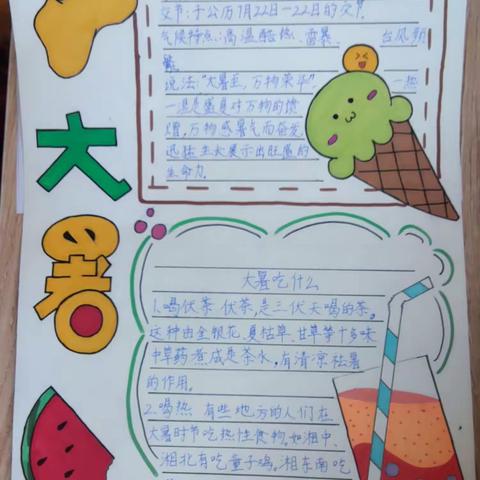 交节:于公历7月22日—22日的交节.
气候特点:高温酷热、雷暴、台风频
繁
说法:"大暑至,万物荣华".一热
一湿是盛夏对万物的馈
赠,万物感暑气而奋发
迅猛生长展示出旺盛的
生命力.
大
暑
大暑吃什么
1.喝伏茶 伏茶,是三伏天喝的茶。
这种由金银花、夏枯草、甘草等十多味
中草药煮成是茶水,有清凉祛暑
的作用。
2.喝热 有些地方的人们在
大暑时节吃热性食物,如湘中、
湘北有吃童子鸡,湘东南吃